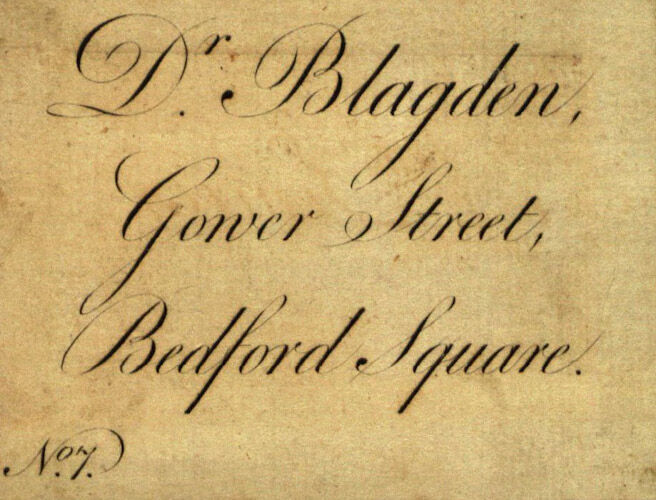 Dr. Blagden,
Gower Street,
Bedford Square.
No. 7.